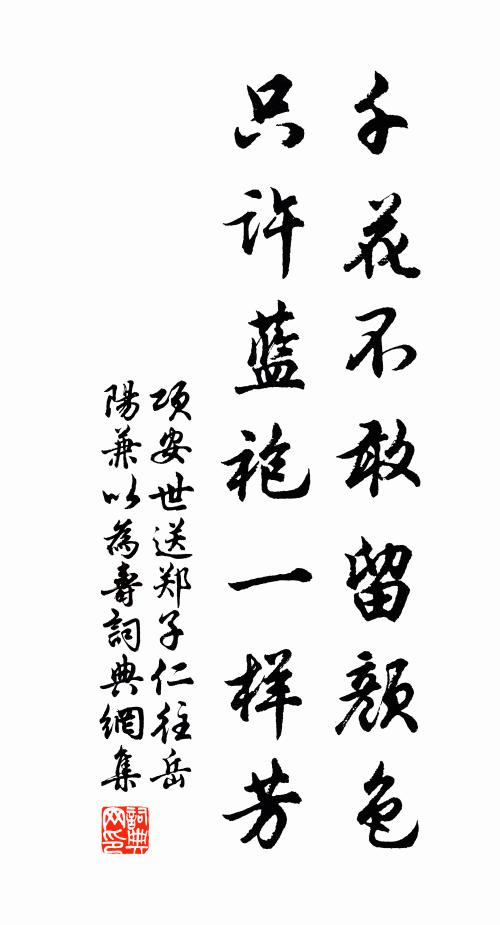 千花不敢留颜色
只许蓝袍一样芳
项安世送郑子仁往岳
陽兼以為壽詞典網集
詞典
网印